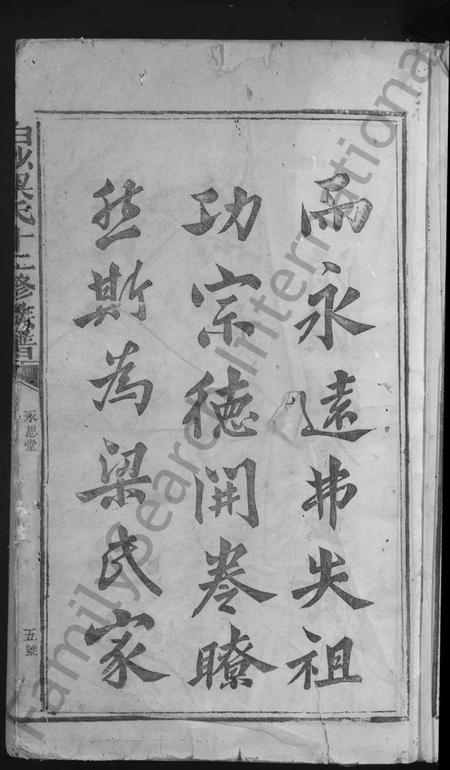 而永遠弗失祖
功宗德開卷瞭
然斯為梁氏家
白沙吳氏十二修族譜
永思堂
五號
FamilySearch International